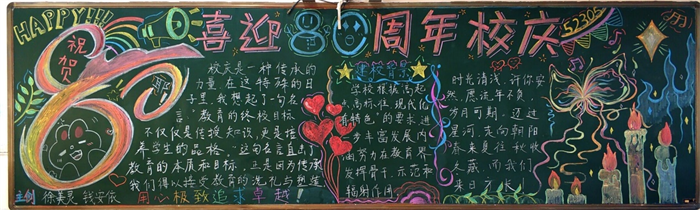 HAPPY!!!
祝贺
80
喜迎80周年校庆
52305
校庆是一种传承的
力量,在这特殊的日
子里,我想起了一句名
言:教育的终极目标
不仅仅是传授知识,更是培
养学生的品格。这句名言道出了
教育的本质和目标,正是因为传承
我们得以接受教育的洗礼与塑造
建校背景
学校根据"高起
点、高标准、现代化
有特色"的要求进一
步丰富发展内
涵,努力在教育界
发挥骨干、示范和
辐射作用
时光清浅,许你安
然,愿流年不负,
岁月可期,迈过
星河,走向朝阳
春来夏往,秋收
冬藏,而我们
来日方长
主创 徐美灵 钱安依
用心极致 追求卓越